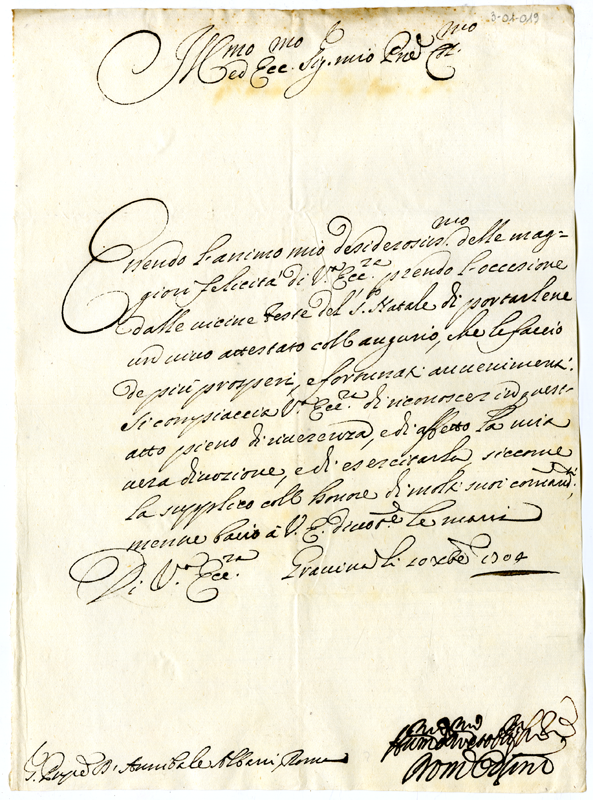 3-01-019
Ill.mo ed Ecc.mo Sig.re mio P.rone Col.mo
Essendo l'animo mio desiderosiss.mo delle mag=
giori felicità di V.ra Ecc.za prendo l'occasione
dalle vicine feste del S.to Natale di portarlene
un vivo attestato coll'augurio, che le faccio
de più prosperi, e fortunati avvenimenti.
Si compiaccia V.ra Ecc.za di riconoscer in quest'
atto pieno di riverenza, e di affetto la mia
vera divozione, e di esercitarla, siccome
la supplico coll'honore di molti suoi comandi,
mentre bacio à V. E. divot.e le mani
Di V.ra Ecc.za Gravina li 20 Xbre 1704
S.r D. Annibale Albani Roma